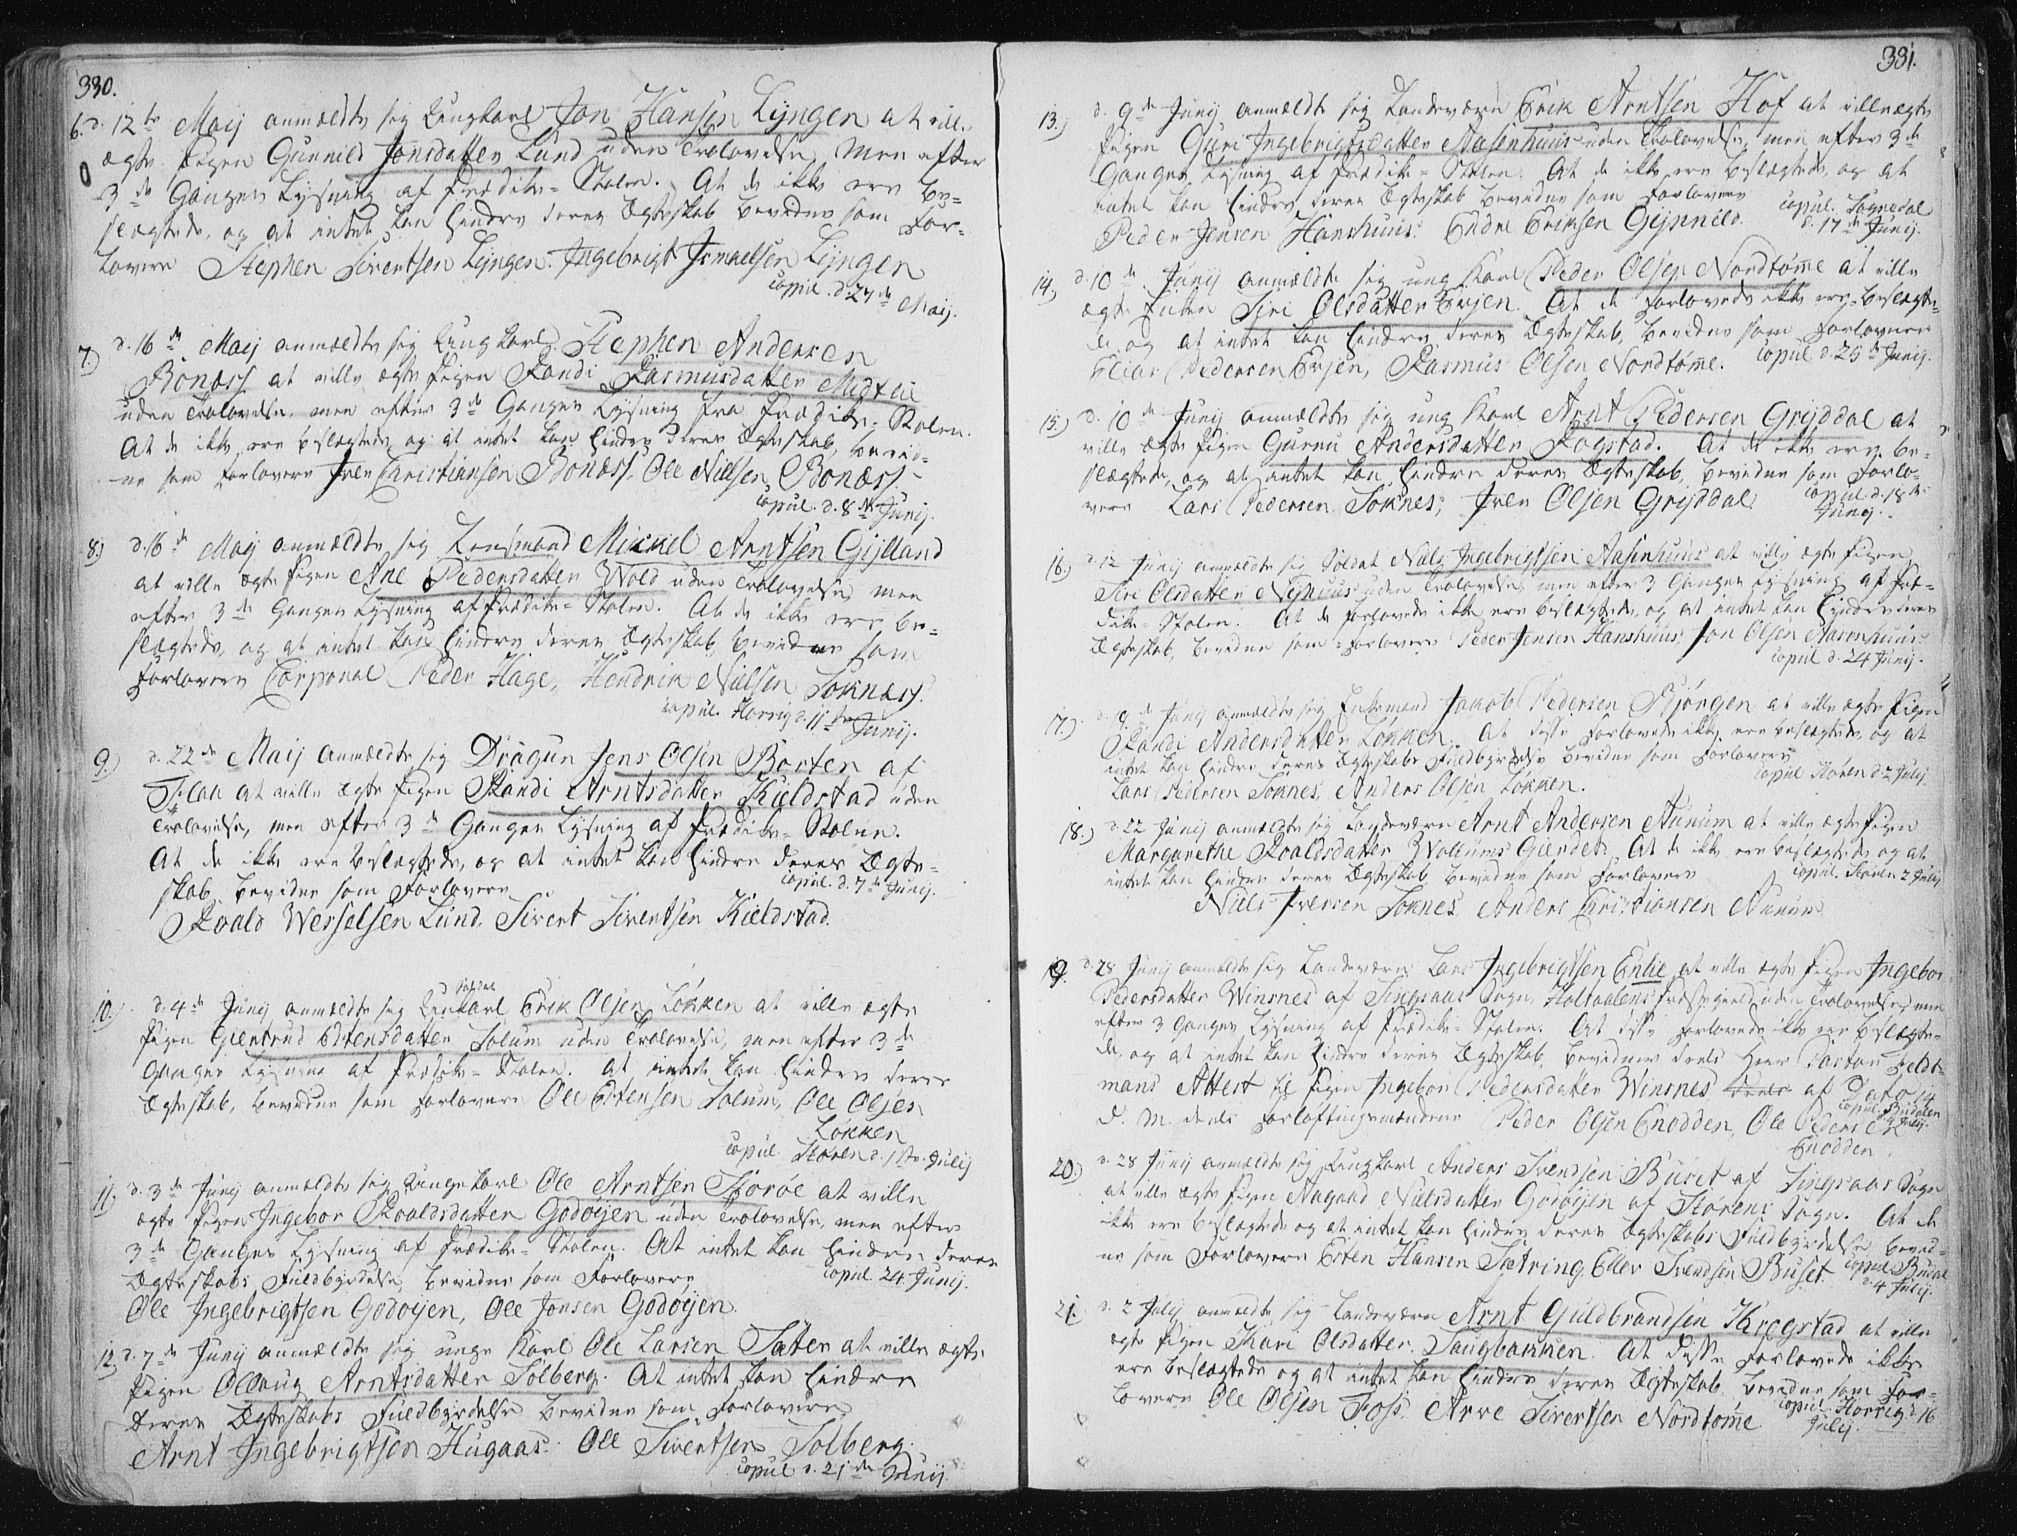 330.
6. d. 12te Maij anmældte sig Ungkarl Jon Hansen Lyngen at ville
ægte Pigen Gunnild Jonsdatter Lund uden Trolovelse, men efter
3de Ganges Lysning af Prædike-Stolen. At de ikke ere be-
slægtede, og at intet kan hindre deres Ægteskab bevidne som For-
lovere Stephen Sivertsen Lyngen. Ingebrigt Ismaelsen Lyngen
copul. d. 27de Maij.
7.) d. 16de Maij anmældte sig Ungkarl Stephen Andersen
Bonæss at ville ægte Pigen Randi Rasmusdatter Midteie
uden Trolovelse, men efter 3de Ganges Lysning fra Prædike-Stolen.
At de ikke ere beslægtede, og at intet kan hindre deres Ægteskab, bevid-
ne som Forlovere Iver Christiansen Bonæss, Ole Nielsen Bonæss
copul. d. 8de Junij.
8.) d. 16de Maij anmældte sig Lensmand Mikkel Arntsen Gylland
at ville ægte Pigen Ane Pedersdatter Wold uden Trolovelse, men
efter 3de Ganges Lysning af Prædike-Stolen. At de ikke ere be-
slægtede, og at intet kan hindre deres Ægteskab, bevidne som
Forlovere Corporal Peder Hage, Hendrik Nielsen Soknæss.
copul. Horrig d. 11te Junij.
9.) d. 22de Maij anmældte sig Dragun Jens Olsen Borten af
Flaa at ville ægte Pigen Randi Arntsdatter Kieldstad uden
Trolovelse, men efter 3de Ganges Lysning af Prædike-Stolen.
At de ikke ere beslægtede, og at intet kan hindre deres Ægte-
skab, bevidne som Forlovere
copul. d. 7de Junij.
Roald Wesselsen Lund, Sivert Sivertsen Kieldstad.
Soldat
10.) d. 4de Junij anmældte sig Ungkarl Erik Olsen Løkken at ville ægte
Pigen Giertrud Estensdatter Solum uden Trolovelse, men efter 3de
Ganges Lysning af Prædike-Stolen. At intet kan hindre deres
Ægteskab, bevidne som Forlovere Ole Estensen Solum, Ole Olsen
Løkken
copul. Støren d. 1te Julij
11.) d. 3de Junij anmældte sig Ungekarl Ole Arntsen Storøe at ville
ægte Pigen Ingebor Roaldsdatter Godøyen uden Trolovelse, men efter
3de Ganges Lysning af Prædike-Stolen. At intet kan hindre deres
Ægteskabs Fuldbyrdelse, bevidne som Forlovere
copul. 24 Junij.
Ole Ingebrigtsen Godøyen, Ole Jonsen Godøyen.
12.) d. 7de Junij anmældte sig unge Karl Ole Larsen Sæter at ville ægte
Pigen Ollaug Arntsdatter Solberg. At intet kan hindre
deres Ægteskabs Fuldbyrdelse bevidne som Forlovere
Arnt Ingebrigtsen Hugaas. Ole Sivertsen Solberg.
copul. d. 21de Junij.
331.
13.) d. 9de Junij anmældte sig Landeværn Erik Arntsen Hof at ville ægte
Pigen Guri Ingebrigtsdatter Aasenhuus uden Trolovelse, men efter 3de
Ganges Lysning af Prædike-Stolen. At de ikke ere beslægtede, og at
intet kan hindre deres Ægteskab bevidne som Forlovere
copul. Sognedal
d. 17de Junij.
Peder Jensen Hanshuus. Endre Eriksen Gynnild.
14.) d. 10de Junij anmældte sig ung Karl Peder Olsen Nordtømme at ville
ægte Enken Siri Olsdatter Ersen. At de Forlovede ikke ere beslægte-
de, og at intet kan hindre deres Ægteskab, bevidne som Forlovere
Elias Pedersen Ersen, Rasmus Olsen Nordtømme. copul. d. 25de Junij.
15.) d. 10de Junij anmældte sig ung Karl Arnt Pedersen Gryddal at
ville ægte Pigen Guruu Andersdatter Rogstad. At de ikke ere be-
slægtede, og at intet kan hindre deres Ægteskab, bevidne som Forlo-
vere Lars Pedersen Soknes, Iver Olsen Gryddal
copul. d. 18de
Junij.
16.) d. 12 Junij anmældte sig Soldat Niels Ingebrigtsen Aasenhuus at ville ægte Pigen
Siri Olsdatter Nyhuus uden Trolovelse, men efter 3 Ganges Lysning af Præ-
dike-Stolen. At de Forlovede ikke ere beslægtede, og at intet kan hindre deres
Ægteskab, bevidne som Forlovere Peder Jensen Hanshuus, Jon Olsen Aasenhuus
copul. d. 24 Junij.
17.) d. 9de Junij anmældte sig Enkemand Jakob Pedersen Bjørgen at ville ægte Pigen
Randi Andersdatter Løkken. At disse Forlovede ikke ere beslægtede, og at
intet kan hindre deres Ægteskabs Fuldbyrdelse bevidne som Forlovere
copul. Støren d. 2 Julij.
Lars Pedersen Soknes, Anders Olsen Løkken.
18.) d. 22 Junij anmældte sig Landeværn Arnt Andersen Aunum at ville ægte Pigen
Margarethe Roaldsdatter Wollums Gierdet. At de ikke ere beslægtede, og at
intet kan hindre deres Ægteskab bevidne som Forlovere
copul. Støren 2 Julij
Niels Iversen Soknes, Anders Christiansen Aunum.
19. d. 28 Junij anmældte sig Landeværn Lars Ingebrigtsen Enlie at ville ægte Pigen Ingebor
Pedersdatter Winsnes af Singsaas Sogn, Holtaalens Præstegield uden Trolovelse, men
efter 3 Ganges Lysning af Prædike-Stolen. At disse Forlovede ikke ere beslægte-
de, og at intet kan hindre deres Ægteskab, bevidner deels Herr Pastor Feldt-
mans Attest til Pigen Ingebor Pedersdatter Winsnes af Dato 14
d. M. deels Forloftningsmændene Peder Olsen Enodden, Ole Pedersen
Enodden
copul. Budalen
4 Julij.
20.) d. 28 Junij anmældte sig Ungkarl Anders Svendsen Buset af Singsaas Sogn
at ville ægte Pigen Aagaad Nielsdatter Godøyen af Størens Sogn. At de
ikke ere beslægtede og at intet kan hindre deres Ægteskabs Fuldbyrdelse bevid-
ne som Forlovere Esten Hansen Sætring, Eller Svendsen Buset.
copul. Budal
d. 4 Julij.
21. d. 2 Julij anmældte sig Landeværn Arnt Guldbrandsen Krogstad at ville
ægte Pigen Kari Olsdatter Haugbakken. At disse Forlovede ikke
ere beslægtede og at intet kan hindre deres Ægteskab, bevidne som For-
lovere Ole Olsen Foss. Arve Sivertsen Nordtømme
copul. Horrig d. 16
Julij.